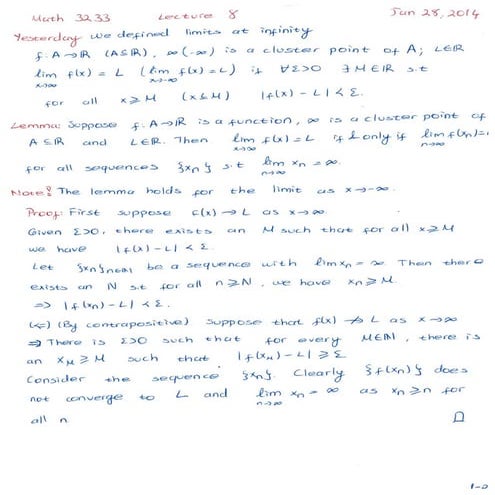 Math 3233 Lecture 8 Jan 28, 2014
Yesterday we defined limits at infinity
f: A→ℝ (A⊆ℝ), ∞(-∞) is a cluster point of A; L∈ℝ
lim f(x) = L (lim f(x) = L) if ∀ε>0 ∃M∈ℝ s.t
x→∞ x→-∞
for all x≥M (x≤M) |f(x) - L| < ε.
Lemma: Suppose f: A→ℝ is a function, ∞ is a cluster point of
A⊆ℝ and L∈ℝ. Then lim f(x) = L if & only if lim f(xn)=L
x→∞ n→∞
for all sequences {xn} s.t lim xn = ∞.
n→∞
Note: The lemma holds for the limit as x→-∞.
Proof: First suppose f(x) → L as x→∞
Given ε>0, there exists an M such that for all x≥M
we have |f(x)-L| < ε.
Let {xn}n∈ℕ be a sequence with lim xn = ∞. Then there
exists an N s.t for all n≥N, we have xn≥M.
⇒ |f(xn) - L| < ε.
(⇐) (By contrapositive) Suppose that f(x) ↛ L as x→∞
⇒ There is ε>0 such that for every M∈ℕ, there is
an xM ≥ M such that |f(xM) - L| ≥ ε
Consider the sequence {xn}. Clearly {f(xn)} does
not converge to L and lim xn = ∞ as xn≥n for
n→∞
all n □